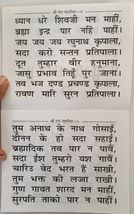 श्री राम चालीसा-१
ध्यान धरे शिवजी मन माहीं,
ब्रह्मा इन्द्र पार नहिं पाहीं।
जय जय जय रघुनाथ कृपाला,
सदा करो सन्तन प्रतिपाला।
दूत तुम्हार वीर हनुमाना,
जासु प्रभाव तिहूँ पुर जाना।
तव भुज दण्ड प्रचण्ड कृपाला,
रावण मारि सुरन प्रतिपाला।
श्री राम चालीसा-२
तुम अनाथ के नाथ गोसाईं,
दीनन के हो सदा सहाई।
ब्रह्मादिक तव पार न पावैं,
सदा ईश तुम्हरो यश गावैं।
चारिउ वेद भरत हैं साखी,
तुम भक्तन की लज्जा राखी।
गुण गावत शारद मन माहीं,
सुरपति ताको पार न पाहीं।